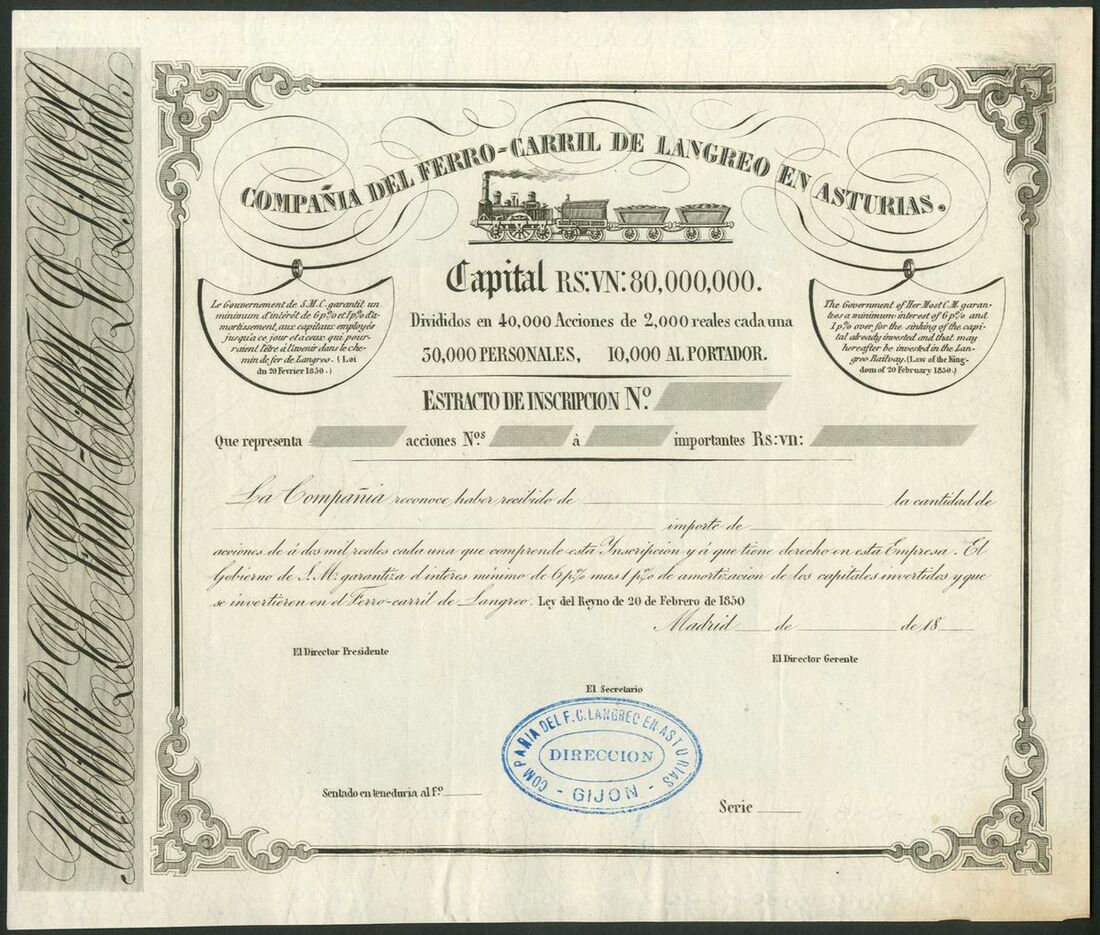 COMPAÑIA DEL FERRO-CARRIL DE LANGREO EN ASTURIAS.
Capital RS:VN: 80,000,000.
Divididos en 40,000 Acciones de 2,000 reales cada una
30,000 PERSONALES, 10,000 AL PORTADOR.
Le Gouvernement de S.M.C. garantit un
minimum d'intérêt de 6 p% et 1 p% d'a-
mortissement, aux capitaux employés
jusqu'a ce jour et a ceux qui pour-
raient l'être à l'avenir dans le che-
min de fer de Langreo. (Loi
du 20 Fevrier 1850.)
The Government of Her Most C.M. garan-
tees a minimum interest of 6 p% and
1 p% over, for the sinking of the capi-
tal already invested and that may
hereafter be invested in the Lan-
greo Railway. (Law of the King-
dom of 20 February 1850.)
ESTRACTO DE INSCRIPCION Nº.
Que representa acciones Nºs à importantes Rs:vn:
La Compañia reconoce haber recibido de la cantidad de
importe de
acciones de á dos mil reales cada una que comprende esta Inscripcion y á que tiene derecho en esta Empresa. El
Gobierno de S.M: garantiza el interes minimo de 6 p% mas 1 p% de amortizacion de los capitales invertidos y que
se invertieren en el Ferro-carril de Langreo. Ley del Reyno de 20 de Febrero de 1850
Madrid de de 18
El Director Presidente
El Director Gerente
El Secretario
COMPAÑIA DEL F.C. LANGREO EN ASTURIAS
DIRECCION
- GIJON -
Sentado en teneduria al fº.
Serie